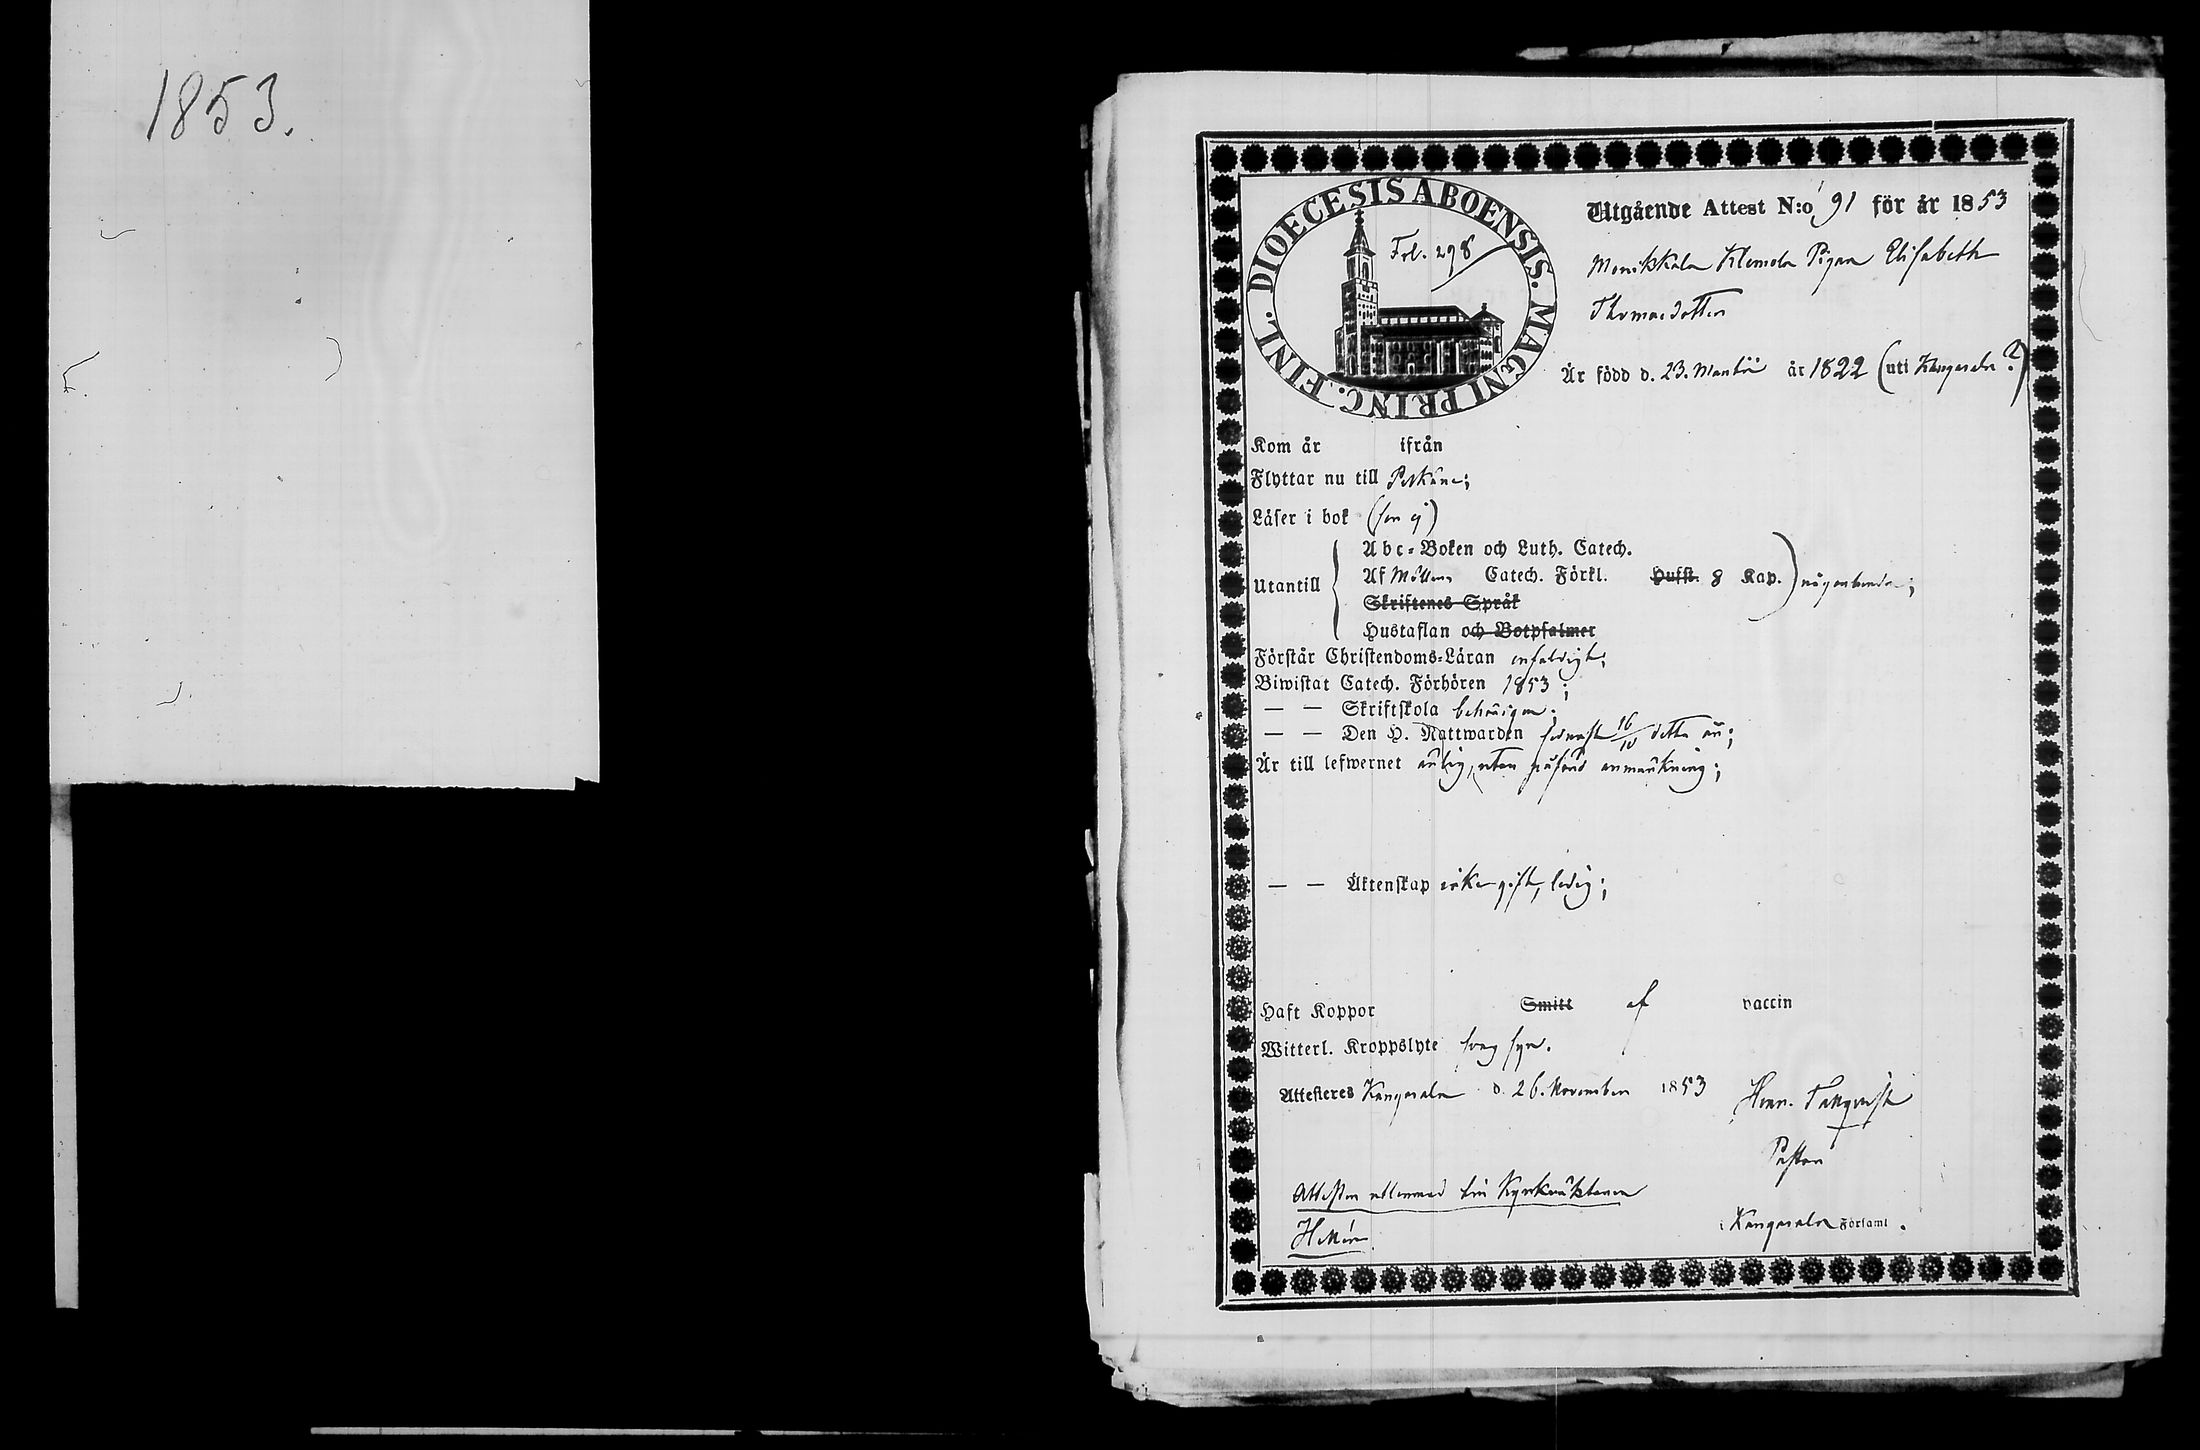 1853.
DIOECESIS ABOENSIS. MAGNI PRINC. FINL.
Fol. 298
Utgående Attest N:o 91 för år 1853
Klemola Pigan Elisabeth
Thomasdotter
Är född d. 23. Martii år 1822 (uti Kangasala?)
Kom år ifrån
Flyttar nu till Pelkäne;
Läser i bok (ser ej)
Utantill
Abc-Boken och Luth. Catech.
Af Möllers Catech. Förkl. Hufst. 8 Kap.) någorlunda;
Skriftenes Språk
Hustaflan och Botpsalmer
Förstår Christendoms-Läran enfaldigt;
Biwistat Catech. Förhören 1853;
— — Skriftskola behörigen;
— — Den H. Nattwarden sednast 16/10 detta år;
Är till lefwernet ärlig, utan påförd anmärkning;
— — Äktenskap icke gift, ledig;
Haft Koppor Smitt af vaccin
Witterl. Kroppslyte svag syn.
Attesteres Kangasala d. 26. November 1853
Henr. Tallqvist
Pastor
Attesten utlemnad till Kyrkoväktaren
i Kangasala Församl.